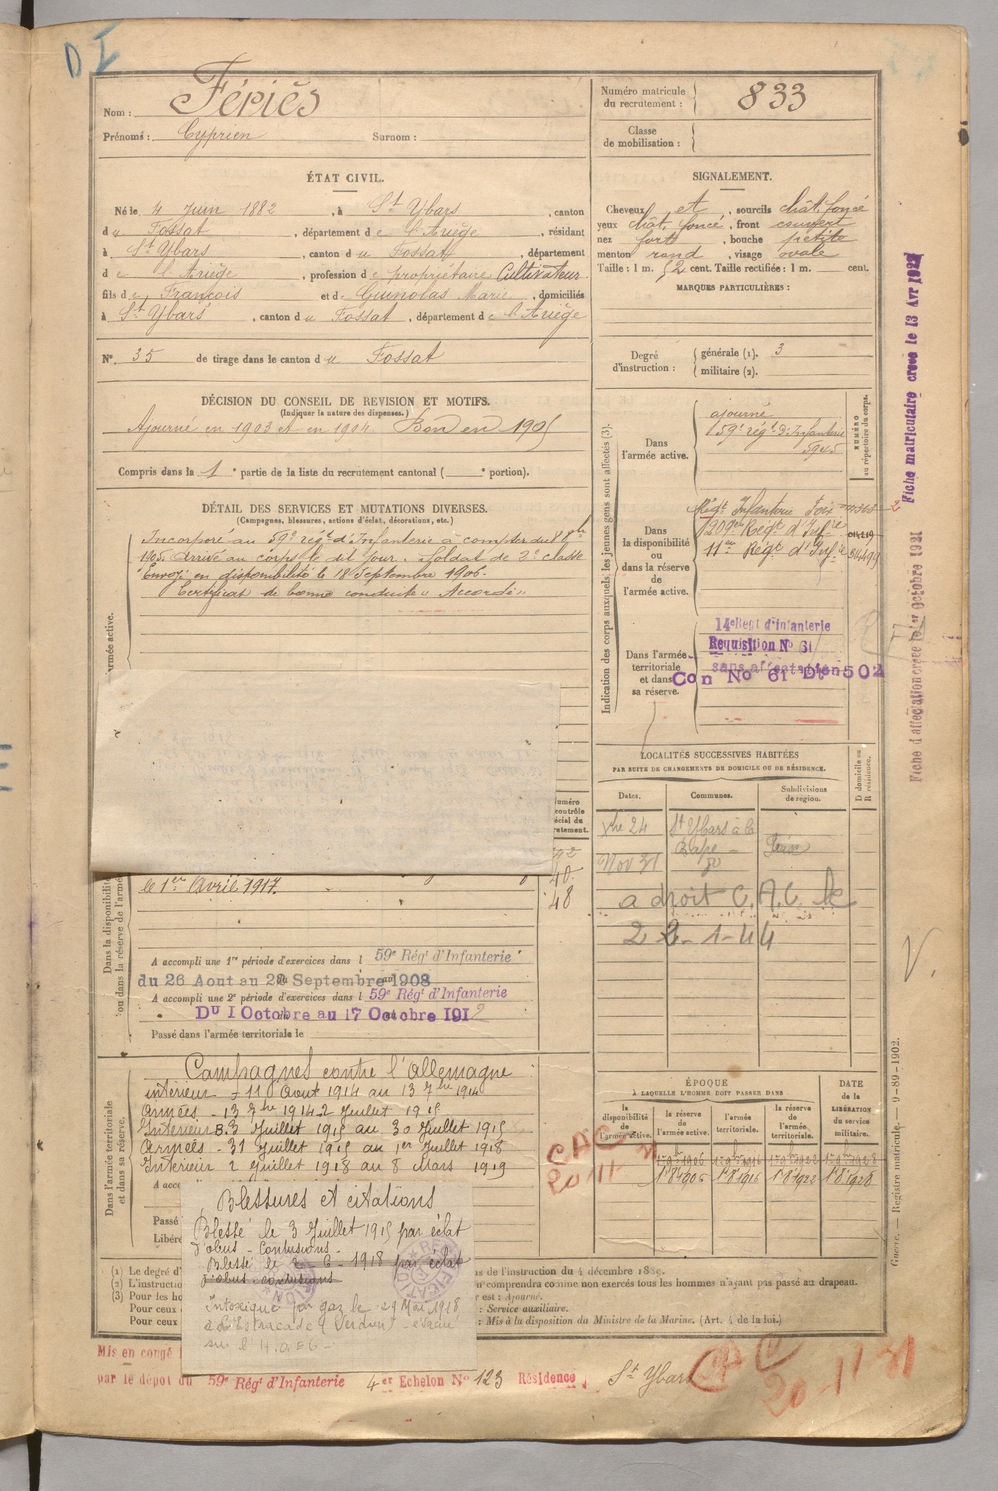 D I
Nom : Fériès
Prénoms : Cyprien Surnom :
Numéro matricule du recrutement : 833
Classe de mobilisation :
ÉTAT CIVIL.
Né le 4 Juin 1882, à St Ybars, canton
du Fossat, département de l'Ariège, résidant
à St Ybars, canton du Fossat, département
de l'Ariège, profession de propriétaire Cultivateur
fils de François et de Guinolas Marie, domiciliés
à St Ybars, canton du Fossat, département de l'Ariège
N° 35 de tirage dans le canton du Fossat
SIGNALEMENT.
Cheveux et, sourcils chât. foncé
yeux chât. foncé, front couvert
nez fort, bouche petite
menton rond, visage ovale
Taille : 1 m. 52 cent. Taille rectifiée : 1 m. cent.
MARQUES PARTICULIÈRES :
Degré d'instruction : générale (1). 3
militaire (2).
DÉCISION DU CONSEIL DE REVISION ET MOTIFS.
(Indiquer la nature des dispenses.)
Ajourné en 1903 et en 1904. Bon en 1905
Compris dans la 1e partie de la liste du recrutement cantonal ( e portion).
DÉTAIL DES SERVICES ET MUTATIONS DIVERSES.
(Campagnes, blessures, actions d'éclat, décorations, etc.)
Incorporé au 59e rég. d'Infanterie à compter du 8 8bre
1905. Arrivé au corps le dit jour. Soldat de 2e classe
Envoyé en disponibilité le 18 Septembre 1906.
Certificat de bonne conduite "Accordé"
armée active.
Indication des corps auxquels les jeunes gens sont affectés (3).
NUMÉRO au répertoire du corps.
Dans l'armée active.
ajourné
59e régt d'Infanterie
5945
Dans la disponibilité ou dans la réserve de l'armée active.
Régt Infanterie Foix
209me Régt d'Infie
11me Régt d'Infie
Dans l'armée territoriale et dans sa réserve.
14e Regt d'infanterie
Requisition N° 61
sans affectation
Con No 61 Don 502
Fiche matriculaire créée le 13 Avr
Fiche d'affectation créée le octobre 1921
LOCALITÉS SUCCESSIVES HABITÉES
PAR SUITE DE CHANGEMENTS DE DOMICILE OU DE RÉSIDENCE.
Dates. Communes. Subdivisions de région. D domicile ou R résidence.
24 St Ybars à la
Nov 31
a droit C.A.C. le
22-1-44
V.
Dans la disponibilité ou dans la réserve de l'armée
le 1er Avril 1917.
40
48
A accompli une 1re période d'exercices dans l 59e Régt d'Infanterie
du 26 Aout au Septembre 1908
A accompli une 2e période d'exercices dans l 59e Régt d'Infanterie
Du 1 Octobre au 17 Octobre 1912
Passé dans l'armée territoriale le
Dans l'armée territoriale et dans sa réserve.
Campagnes contre l'Allemagne
intérieur 11 Aout 1914 au 13 7bre 1914
Armées - 13 7bre 1914 2 Juillet 1915
Intérieur 3 Juillet 1915 au 30 Juillet 1915
Armées - 31 Juillet 1915 au 1er Juillet 1918
Intérieur 2 Juillet 1918 au 8 Mars 1919
A acc
Passé
Libéré
Blessures et citations
Blessé le 3 Juillet 1915 par éclat
d'obus - Contusions -
Blessé le 2 - 6 - 1918 par éclat
d'obus contusions
Intoxiqué par gaz le 29 Mai 1918
Verdun - évacué
sur l'H.O.E 6 -
ÉPOQUE
À LAQUELLE L'HOMME DOIT PASSER DANS
la disponibilité de l'armée active. la réserve de l'armée active. l'armée territoriale. la réserve de l'armée territoriale. DATE de la LIBÉRATION du service militaire.
CAC
20-11-31
(1) Le degré d'
(2) L'instructio
(3) Pour les ho
Pour ceux
Pour ceux
s de l'instruction du 4 décembre 1889.
u comprendra comme non exercés tous les hommes n'ayant pas passé au drapeau.
er est : Ajourné.
: Service auxiliaire.
: Mis à la disposition du Ministre de la Marine. (Art. 4 de la loi.)
Guerre. — Registre matricule. — 9-89-1902.
Mis en congé
par le dépôt du 59e Régt d'Infanterie 4er Echelon N° 123 Résidence St Ybars
CAC
20-11-31